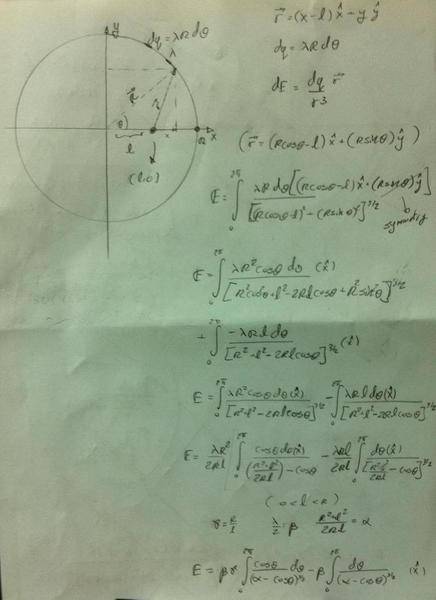 y
dq = λRdθ
λ
R
r
θ
l
x
R
x
(l,0)
r⃗ = (x-l) x̂ + y ŷ
dq = λRdθ
dE = dq/r³ r⃗
(r⃗ = (Rcosθ-l) x̂ + (Rsinθ) ŷ)
E = ∫₀^2π λRdθ[(Rcosθ-l) x̂ + (Rsinθ) ŷ] / [(Rcosθ-l)² + (Rsinθ)²]^3/2
symmetry
E = ∫₀^2π λR²cosθ dθ / [R²cos²θ + l² - 2Rlcosθ + R²sin²θ]^3/2 (x̂)
+ ∫₀^2π -λRl dθ / [R² + l² - 2Rlcosθ]^3/2 (x̂)
E = ∫₀^2π λR²cosθ dθ(x̂) / [R² + l² - 2Rlcosθ]^3/2 - ∫₀^2π λRl dθ(x̂) / [R² + l² - 2Rlcosθ]^3/2
E = λR²/2Rl ∫₀^2π cosθ dθ(x̂) / ((R² + l²)/2Rl - cosθ)^3/2 - λRl/2Rl ∫₀^2π dθ(x̂) / [(R² + l²)/2Rl - cosθ]^3/2
(0 < l < R)
γ = R/l λ/2 = β (R² + l²)/2Rl = α
E = βγ ∫₀^2π cosθ dθ / (α - cosθ)^3/2 - β ∫₀^2π dθ / (α - cosθ)^3/2 (x̂)